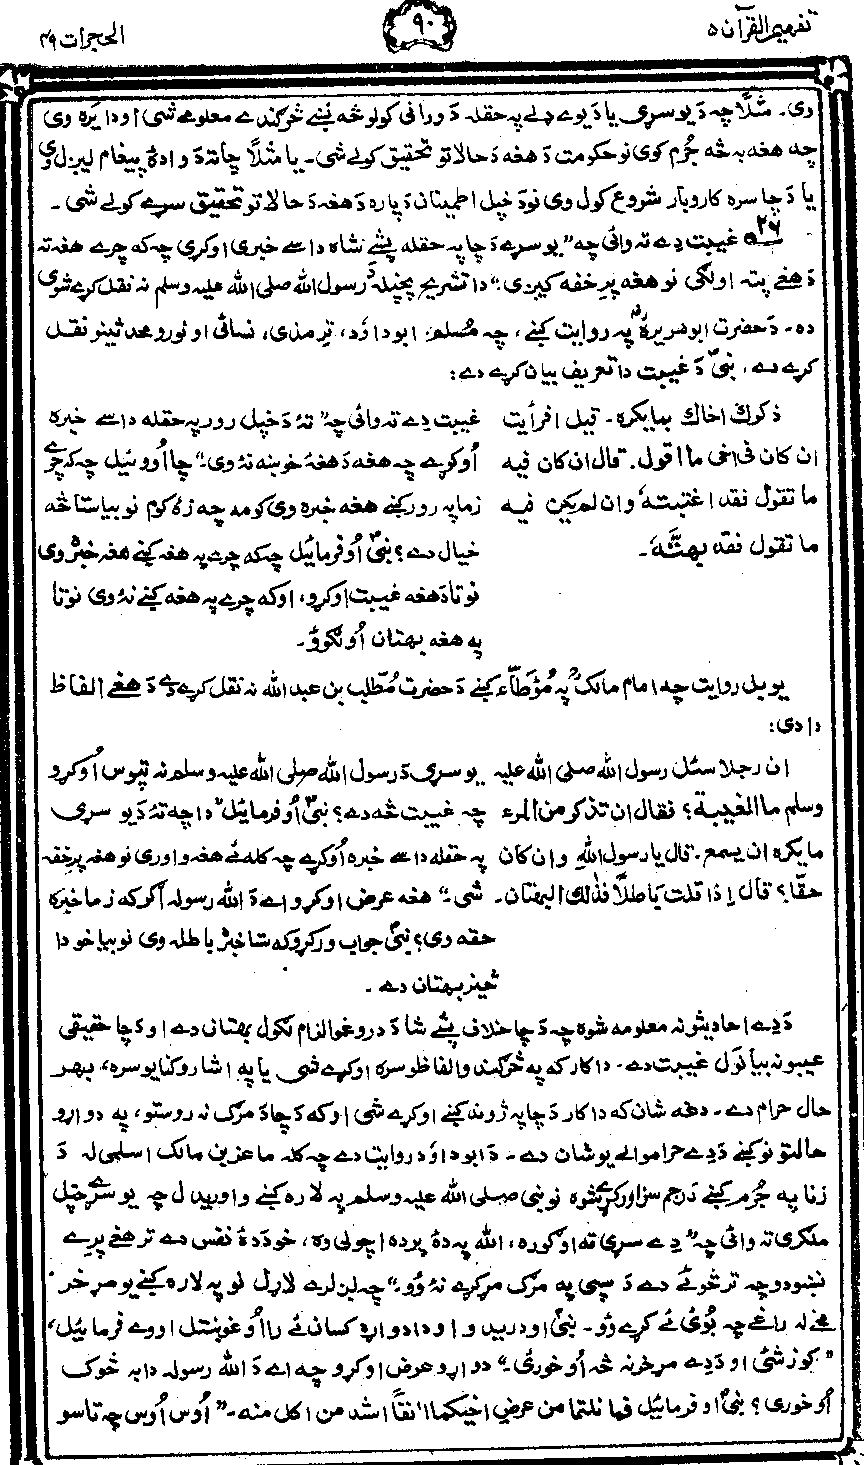 تفهيم القرآن ۵
۹۰
الحجرات ۴۹
دی۔ مثلًا چہ دَ یو سړی یا دَ یوے ډلے پہ حقلہ دَ ورانی کولو څہ نښے څرګندے معلومے شی او دا یَرہ وی
چہ هغہ بہ څہ جُرم کوی نو حکومت دَ هغہ دَ حالاتو تحقیق کولے شی۔ یا مثلًا چاتہ دَ وادهٔ پیغام لیږل وی
یا دَ چا سره کاروبار شروع کول وی نو دَ خپل اطمینان دَ پاره دَ هغہ دَ حالاتو تحقیق سړے کولے شی ۔
۲۶ غیبت دے تہ وائی چہ "یو سړے دَ چا پہ حقلہ پسِے شاه داسے خبرے اوکړی چہ کہ چرے هغہ تہ
دَ هغے پتہ اولګی نو هغہ پرِ خفہ کیږی" دا تشریح پخپلہ دَ رسول اللہ صلی اللہ علیہ وسلم نہ نقل کړے شوی
ده۔ دَ حضرت ابو هریره پہ روایت کښے ، چہ مُسلم، ابو داؤد، ترمذی، نسائی او نورو محدثینو نقل
کړے دے ، نبیؐ دَ غیبت دا تعریف بیان کړے دے :
ذکرک اخاك بما یکره۔ قیل افرأیت
ان کان فی اخی ما اقول۔ قال ان کان فیه
ما تقول فقد اغتبته وان لم یکن فیه
ما تقول فقد بهتّه۔
غیبت دے تہ وائی چہ "تہٗ دَ خپل رور پہ حقلہ داسے خبره
اُوکړے چہ هغہ دَ هغہٗ خوښہ نہٗ وی" چا اُووئیل چہ کہ چرے
زما پہ رور کښے هغہ خبره وی کومہ چہ زہٗ کوم نو بیا ستا څہ
خیال دے ؟ نبیؐ اُوفرمائیل چہ کہ چرے پہ هغہ کښے هغہ خبره وی
نو تا دَ هغہ غیبت اوکړو، او کہ چرے پہ هغہ کښے نہٗ وی نو تا
پہ هغہ بهتان اُولګوؤ۔
یو بل روایت چہ امام مالکؒ پہ مُؤطّاء کښے دَ حضرت مُطّلب بن عبد اللہ نہ نقل کړے دے دَ هغے الفاظ
دا دی:
ان رجلا سئل رسول اللہ صلی اللہ علیہ
وسلم ما الغیبة ؟ فقال ان تذکر من المرء
ما یکره ان یسمع۔ قال یا رسول اللهِ وان کان
حقًا ؟ قال اِذا قلت باطلًا فذلك البهتان۔
یو سړی دَ رسول اللہ صلی اللہ علیہ وسلم نہ تپوس اُوکړو
چہ غیبت څہ دے؟ نبیؐ اُوفرمائیل "دا چہ تہٗ دَ یو سړی
پہ حقلہ داسے خبره اُوکړے چہ کلہ ئے هغہ واوری نو هغہ پرِ خفہ
شی" هغہ عرض اوکړو اے دَ اللہ رسولہ اګر کہ زما خبره
حقہ وی؟ نبیؐ جواب ورکړو کہ ستا خبره باطلہ وی نو بیا خو دا
څیز بهتان دے ۔
دَ دِے احادیثو نہ معلومہ شوه چہ دَ چا خلاف پسِے شا دَ دروغو الزام لګول بهتان دے او دَ چا حقیقی
عیبونہ بیانول غیبت دے۔ دا کار کہ پہ څرګندو الفاظو سره اوکړے شی یا پہ اشارو کنایو سره، بهر
حال حرام دے ۔ دغہ شان کہ دا کار دَ چا پہ ژوند کښے اوکړے شی او کہ دَ چا دَ مرګ نہ روستو، پہ دواړو
حالتو نو کښے دَ دِے حراموالے یو شان دے ۔ دَ ابو داؤد روایت دے چہ کلہ ماعز بن مالک اسلمی لہ دَ
زنا پہ جُرم کښے دَ رجم سزا ورکړے شوه نو نبی صلی اللہ علیہ وسلم پہ لاره کښے واوریدل چہ یو سړے خپل
ملګری تہ وائی چہ "دِے سړی تہ اوګوره، اللہ پہ دهٔ پرده اچولے وه، خو دَ دهٔ نفس دے تر هغے پرے
نښود و چہ تر څو ئے دے دَ سپی پہ مرګ مړ کړے نہٗ وُو۔" چہ لږ لرے لاړل نو پہ لاره کښے یو مړ خر
مخے لہ راغے چہ بُوئی ئے کړے ؤو۔ نبیؐ اودریدو او دا دواړه کسان ئے رااُوغوښتل او وے فرمائیل،
"کوز شئی او دَ دے مړ خر نہ څہ اُوخورئی۔" دواړو عرض اوکړو چہ اے دَ اللہ رسولہ دا بہ څوک
اُوخوری ؟ نبیؐ اوفرمائیل فما نلتما من عرض اخیکما اٰنفًا اشد من اکل منه۔ "اُوس اُوس چہ تاسو